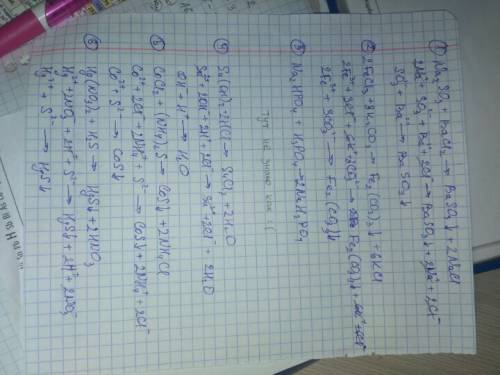 ① Na₂SO₃ + BaCl₂ → BaSO₃↓ + 2NaCl
2Na⁺ + SO₃²⁻ + Ba²⁺ + 2Cl⁻ → BaSO₃↓ + 2Na⁺ + 2Cl⁻
SO₃²⁻ + Ba²⁺ → BaSO₃↓
② 2FeCl₃ + 3K₂CO₃ → Fe₂(CO₃)₃↓ + 6KCl
2Fe³⁺ + 6Cl⁻ + 6K⁺ + 3CO₃²⁻ → Fe₂(CO₃)₃↓ + 6K⁺ + 6Cl⁻
2Fe³⁺ + 3CO₃²⁻ → Fe₂(CO₃)₃↓
③ Na₂HPO₄ + H₃PO₄ → 2NaH₂PO₄
Тут не знаю как :(
④ Sn(OH)₂ + 2HCl → SnCl₂ + 2H₂O
Sn²⁺ + 2OH⁻ + 2H⁺ + 2Cl⁻ → Sn²⁺ + 2Cl⁻ + 2H₂O
OH⁻ + H⁺ → H₂O
⑤ CoCl₂ + (NH₄)₂S → CoS↓ + 2NH₄Cl
Co²⁺ + 2Cl⁻ + 2NH₄⁺ + S²⁻ → CoS↓ + 2NH₄⁺ + 2Cl⁻
Co²⁺ + S²⁻ → CoS↓
⑥ Hg(NO₃)₂ + H₂S → HgS↓ + 2HNO₃
Hg²⁺ + 2NO₃⁻ + 2H⁺ + S²⁻ → HgS↓ + 2H⁺ + 2NO₃⁻
Hg²⁺ + S²⁻ → HgS↓